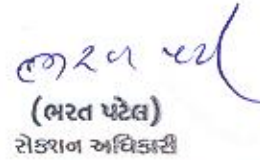 (ભરત પટેલ)
સેક્શન અધિકારી